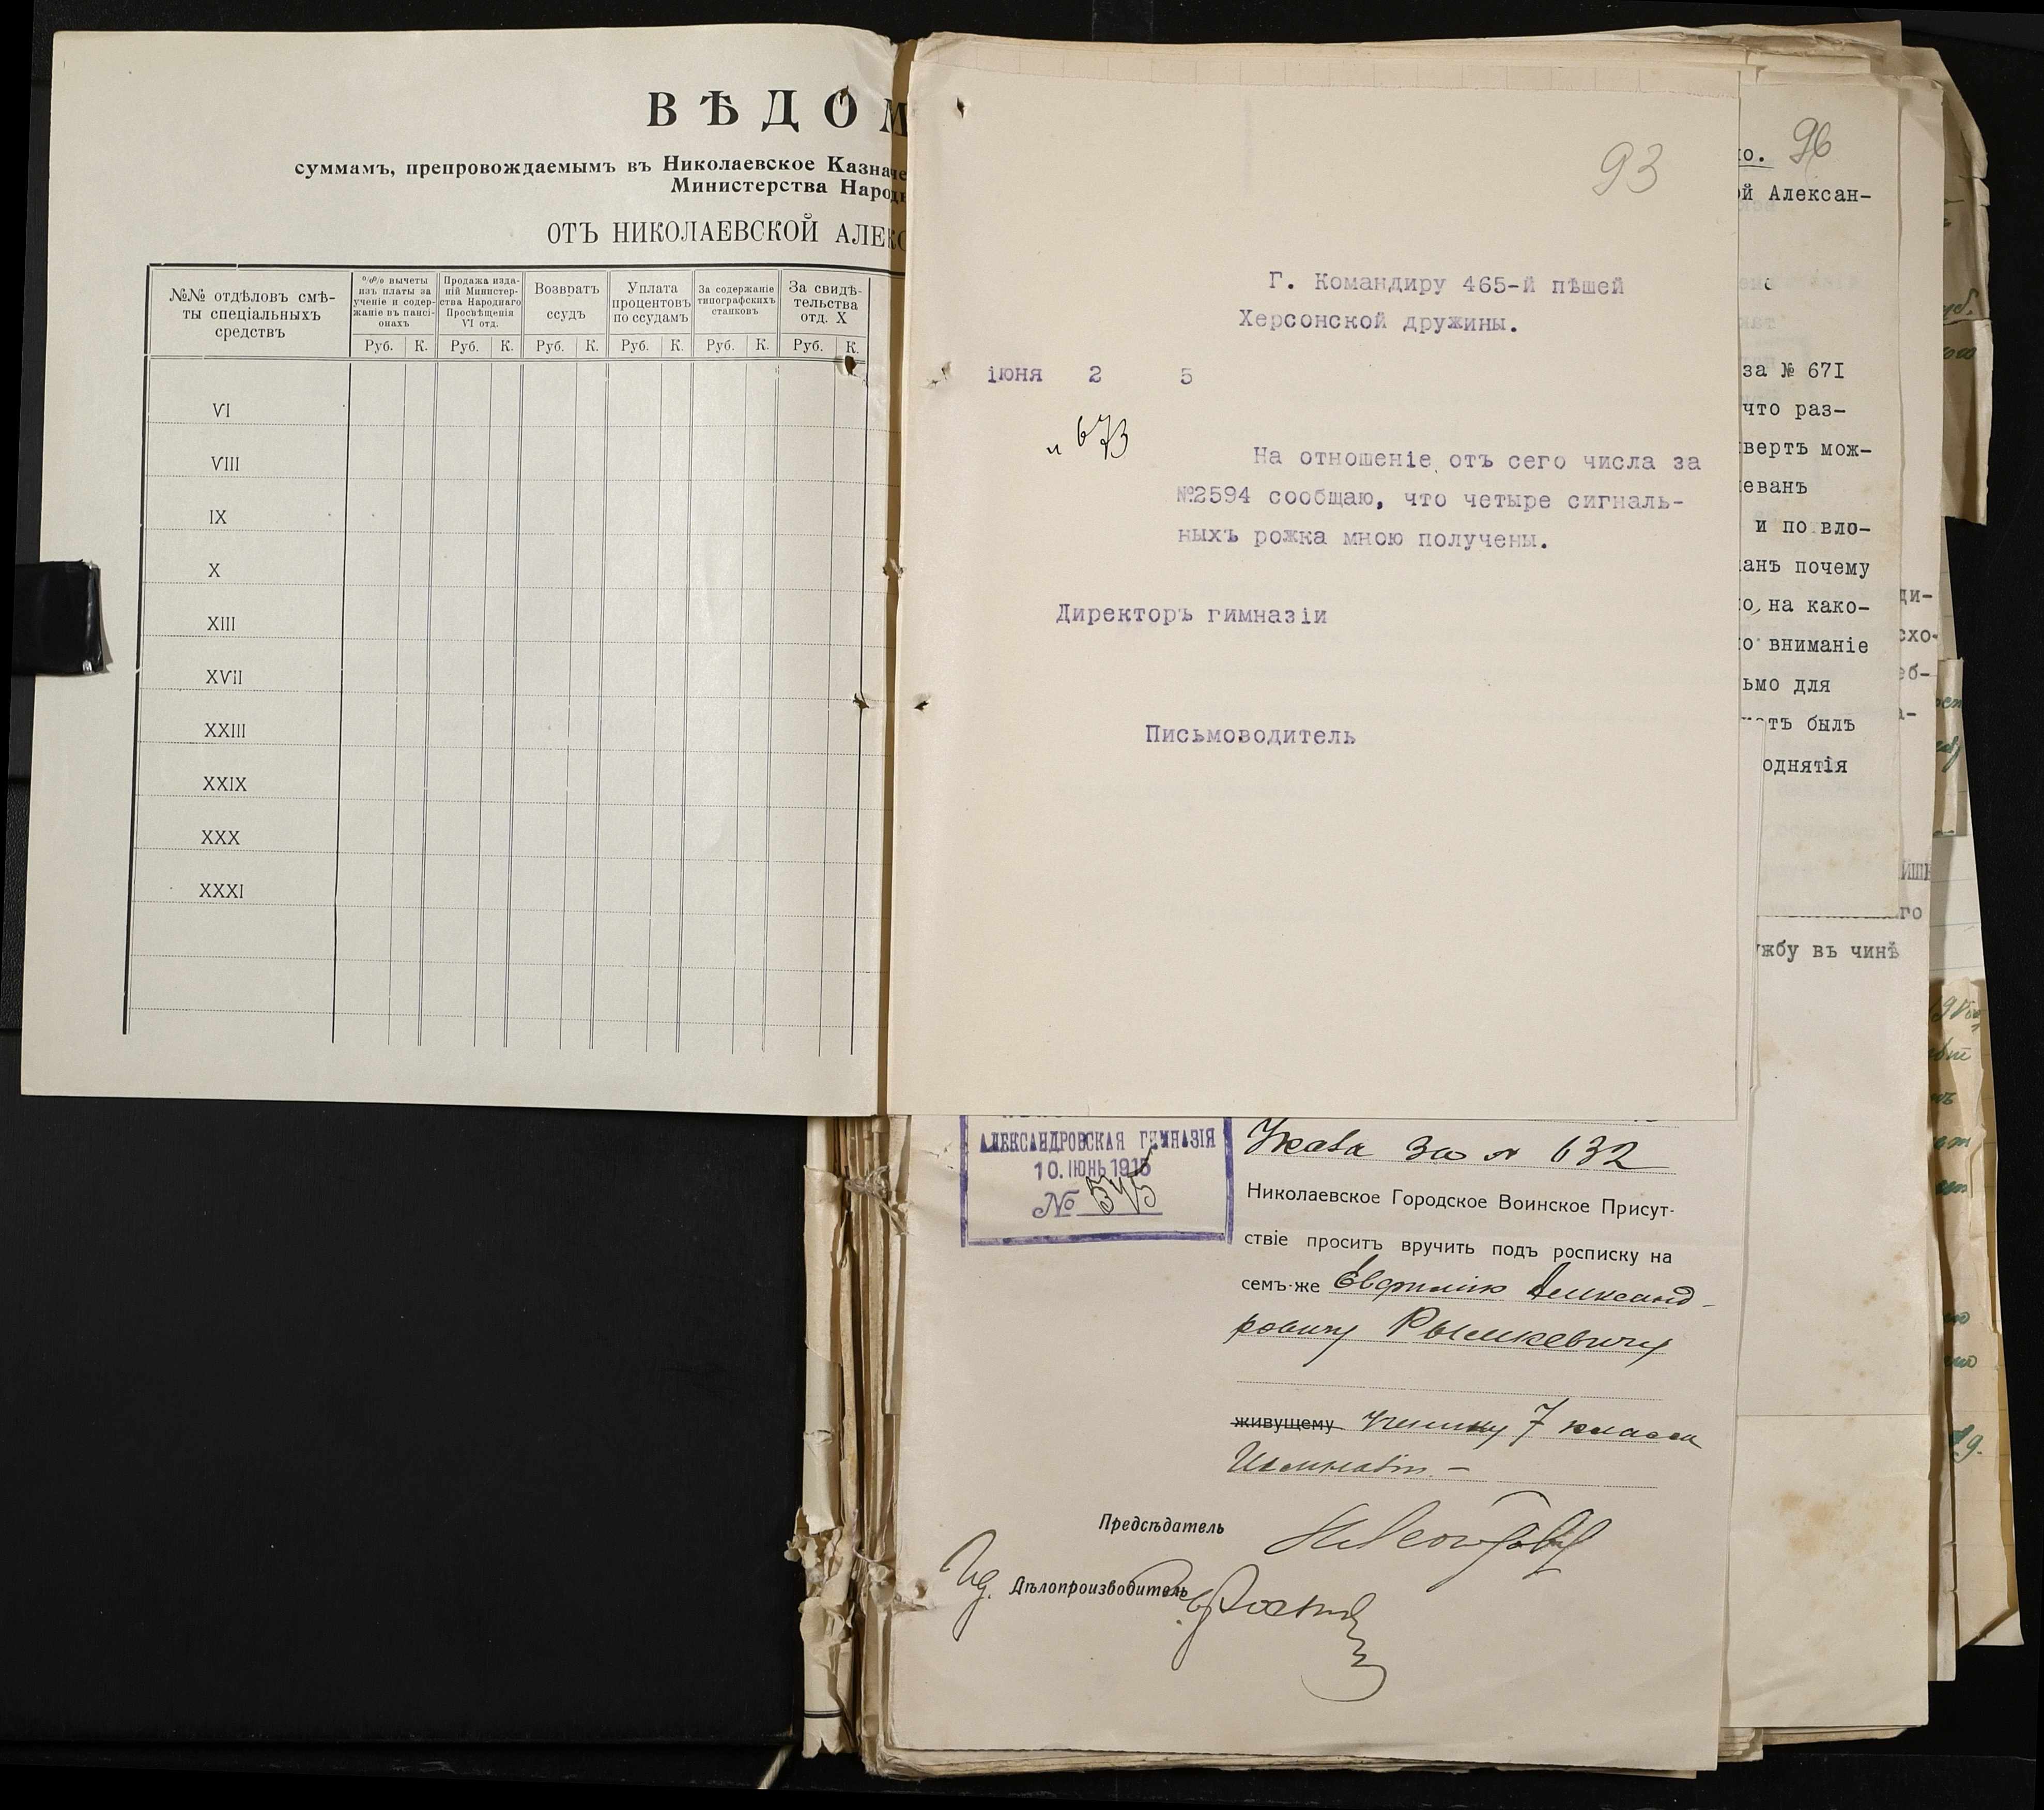 ВѢДОМ
суммамъ, препровождаемымъ въ Николаевское Казначе
Министерства Народн
ОТЪ НИКОЛАЕВСКОЙ АЛЕКС
№№ отдѣловъ смѣ-
ты спеціальныхъ
средствъ
%% вычеты
изъ платы за
ученіе и содер-
жаніе въ пансі-
онахъ
Продажа изда-
ній Министер-
ства Народнаго
Просвѣщенія
VI отд.
Возвратъ
ссудъ
Уплата
процентовъ
по ссудамъ
За содержаніе
типографскихъ
станковъ
За свидѣ-
тельства
отд. X
Руб. К. Руб. К. Руб. К. Руб. К. Руб. К. Руб. К.
VI
VIII
IX
X
XIII
XVII
XXIII
XXIX
XXX
XXXI
93
Г. Командиру 465-й пѣшей
Херсонской дружины.
іюня 2 5
№ 673
На отношеніе отъ сего числа за
№2594 сообщаю, что четыре сигналь-
ныхъ рожка мною получены.
Директоръ гимназіи
Письмоводитель
АЛЕКСАНДРОВСКАЯ ГИМНАЗІЯ
10.ІЮНЬ 1915
№ 575
за № 632
Николаевское Городское Воинское Присут-
ствіе проситъ вручить подъ росписку на
семъ-же Евфимію Александ-
ровичу Рымкевичу
живущему ученику 7 класса
Гимназіи. –
Предсѣдатель
Ид. Дѣлопроизводитель
96
ой Алексан-
за № 67I
что раз-
вертъ мож-
еванъ
и по вло-
анъ почему
о, на како-
о вниманіе
ьмо для
тъ былъ
однятія
жбу въ чинѣ